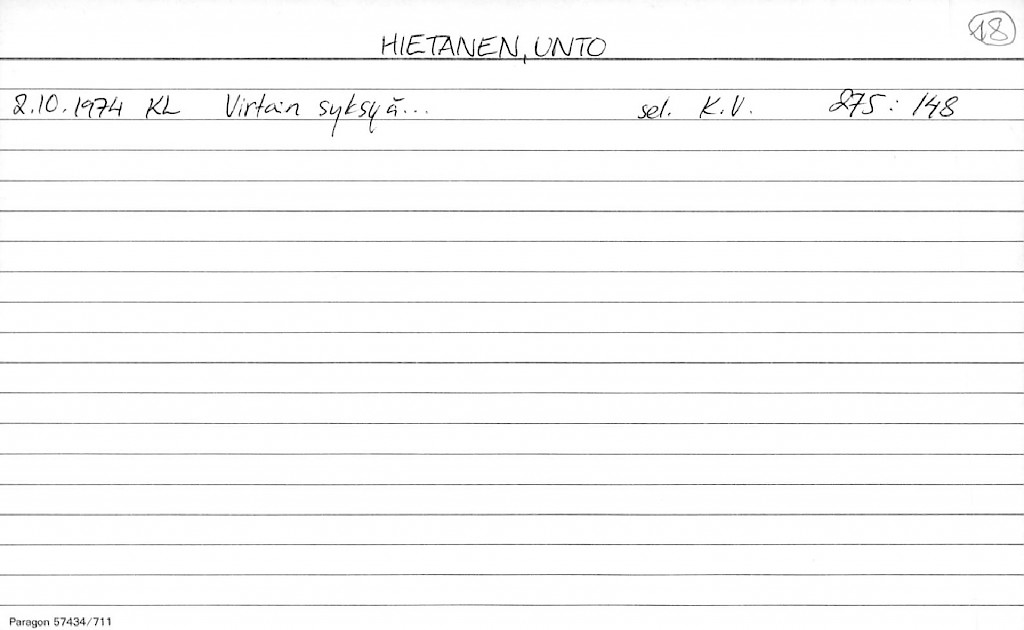 18
HIETANEN, UNTO
2.10.1974 KL Virtain syksyä... sel. K.V. 275: 148
Paragon 57434/711